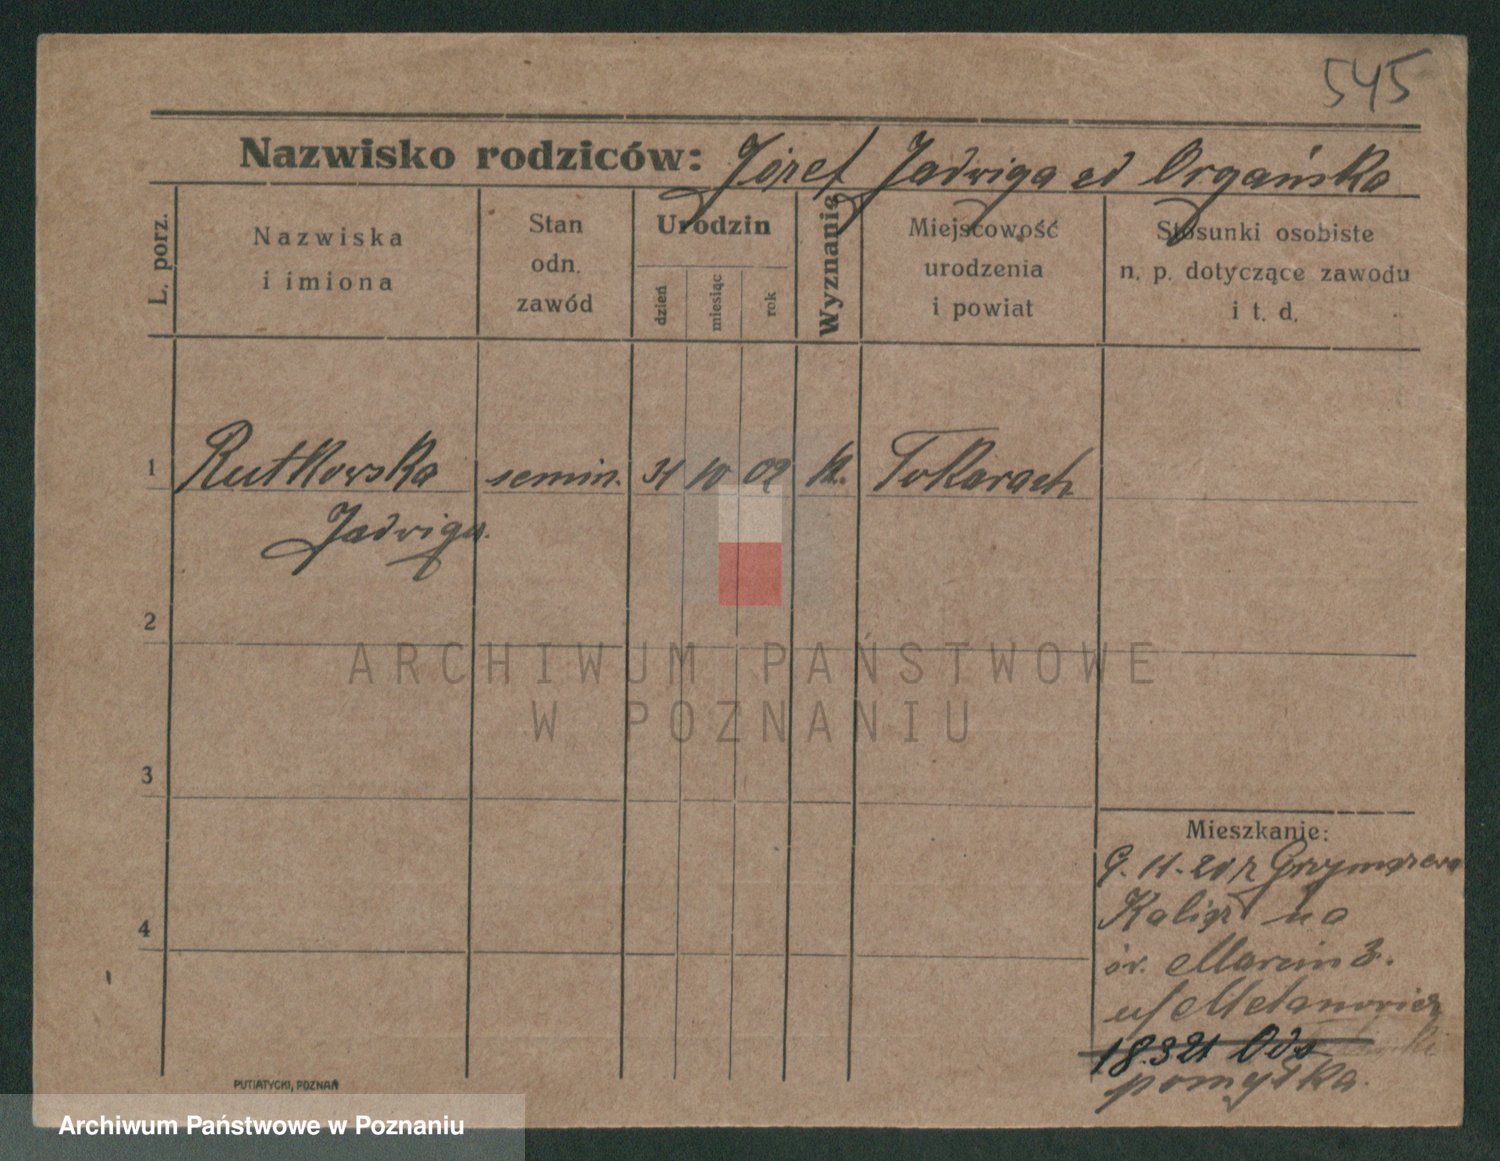 545
Nazwisko rodziców: Józef Jadwiga ed Organśka
L. porz.
Nazwiska
i imiona
Stan
odn.
zawód
Urodzin
dzień
miesiąc
rok
Wyznanie
Miejscowość
urodzenia
i powiat
Stosunki osobiste
n. p. dotyczące zawodu
i t. d.
1 Rutkowska semin. 31 10 02 k. Tokarach
Jadwiga.
2
3
4
ARCHIWUM PAŃSTWOWE
W POZNANIU
Mieszkanie:
9. 11. 20 z
Kalisz na
św. Marcin 3.
u/
18.3 21 Ods
pomyłka.
PUTIATYCKI, POZNAŃ
Archiwum Państwowe w Poznaniu